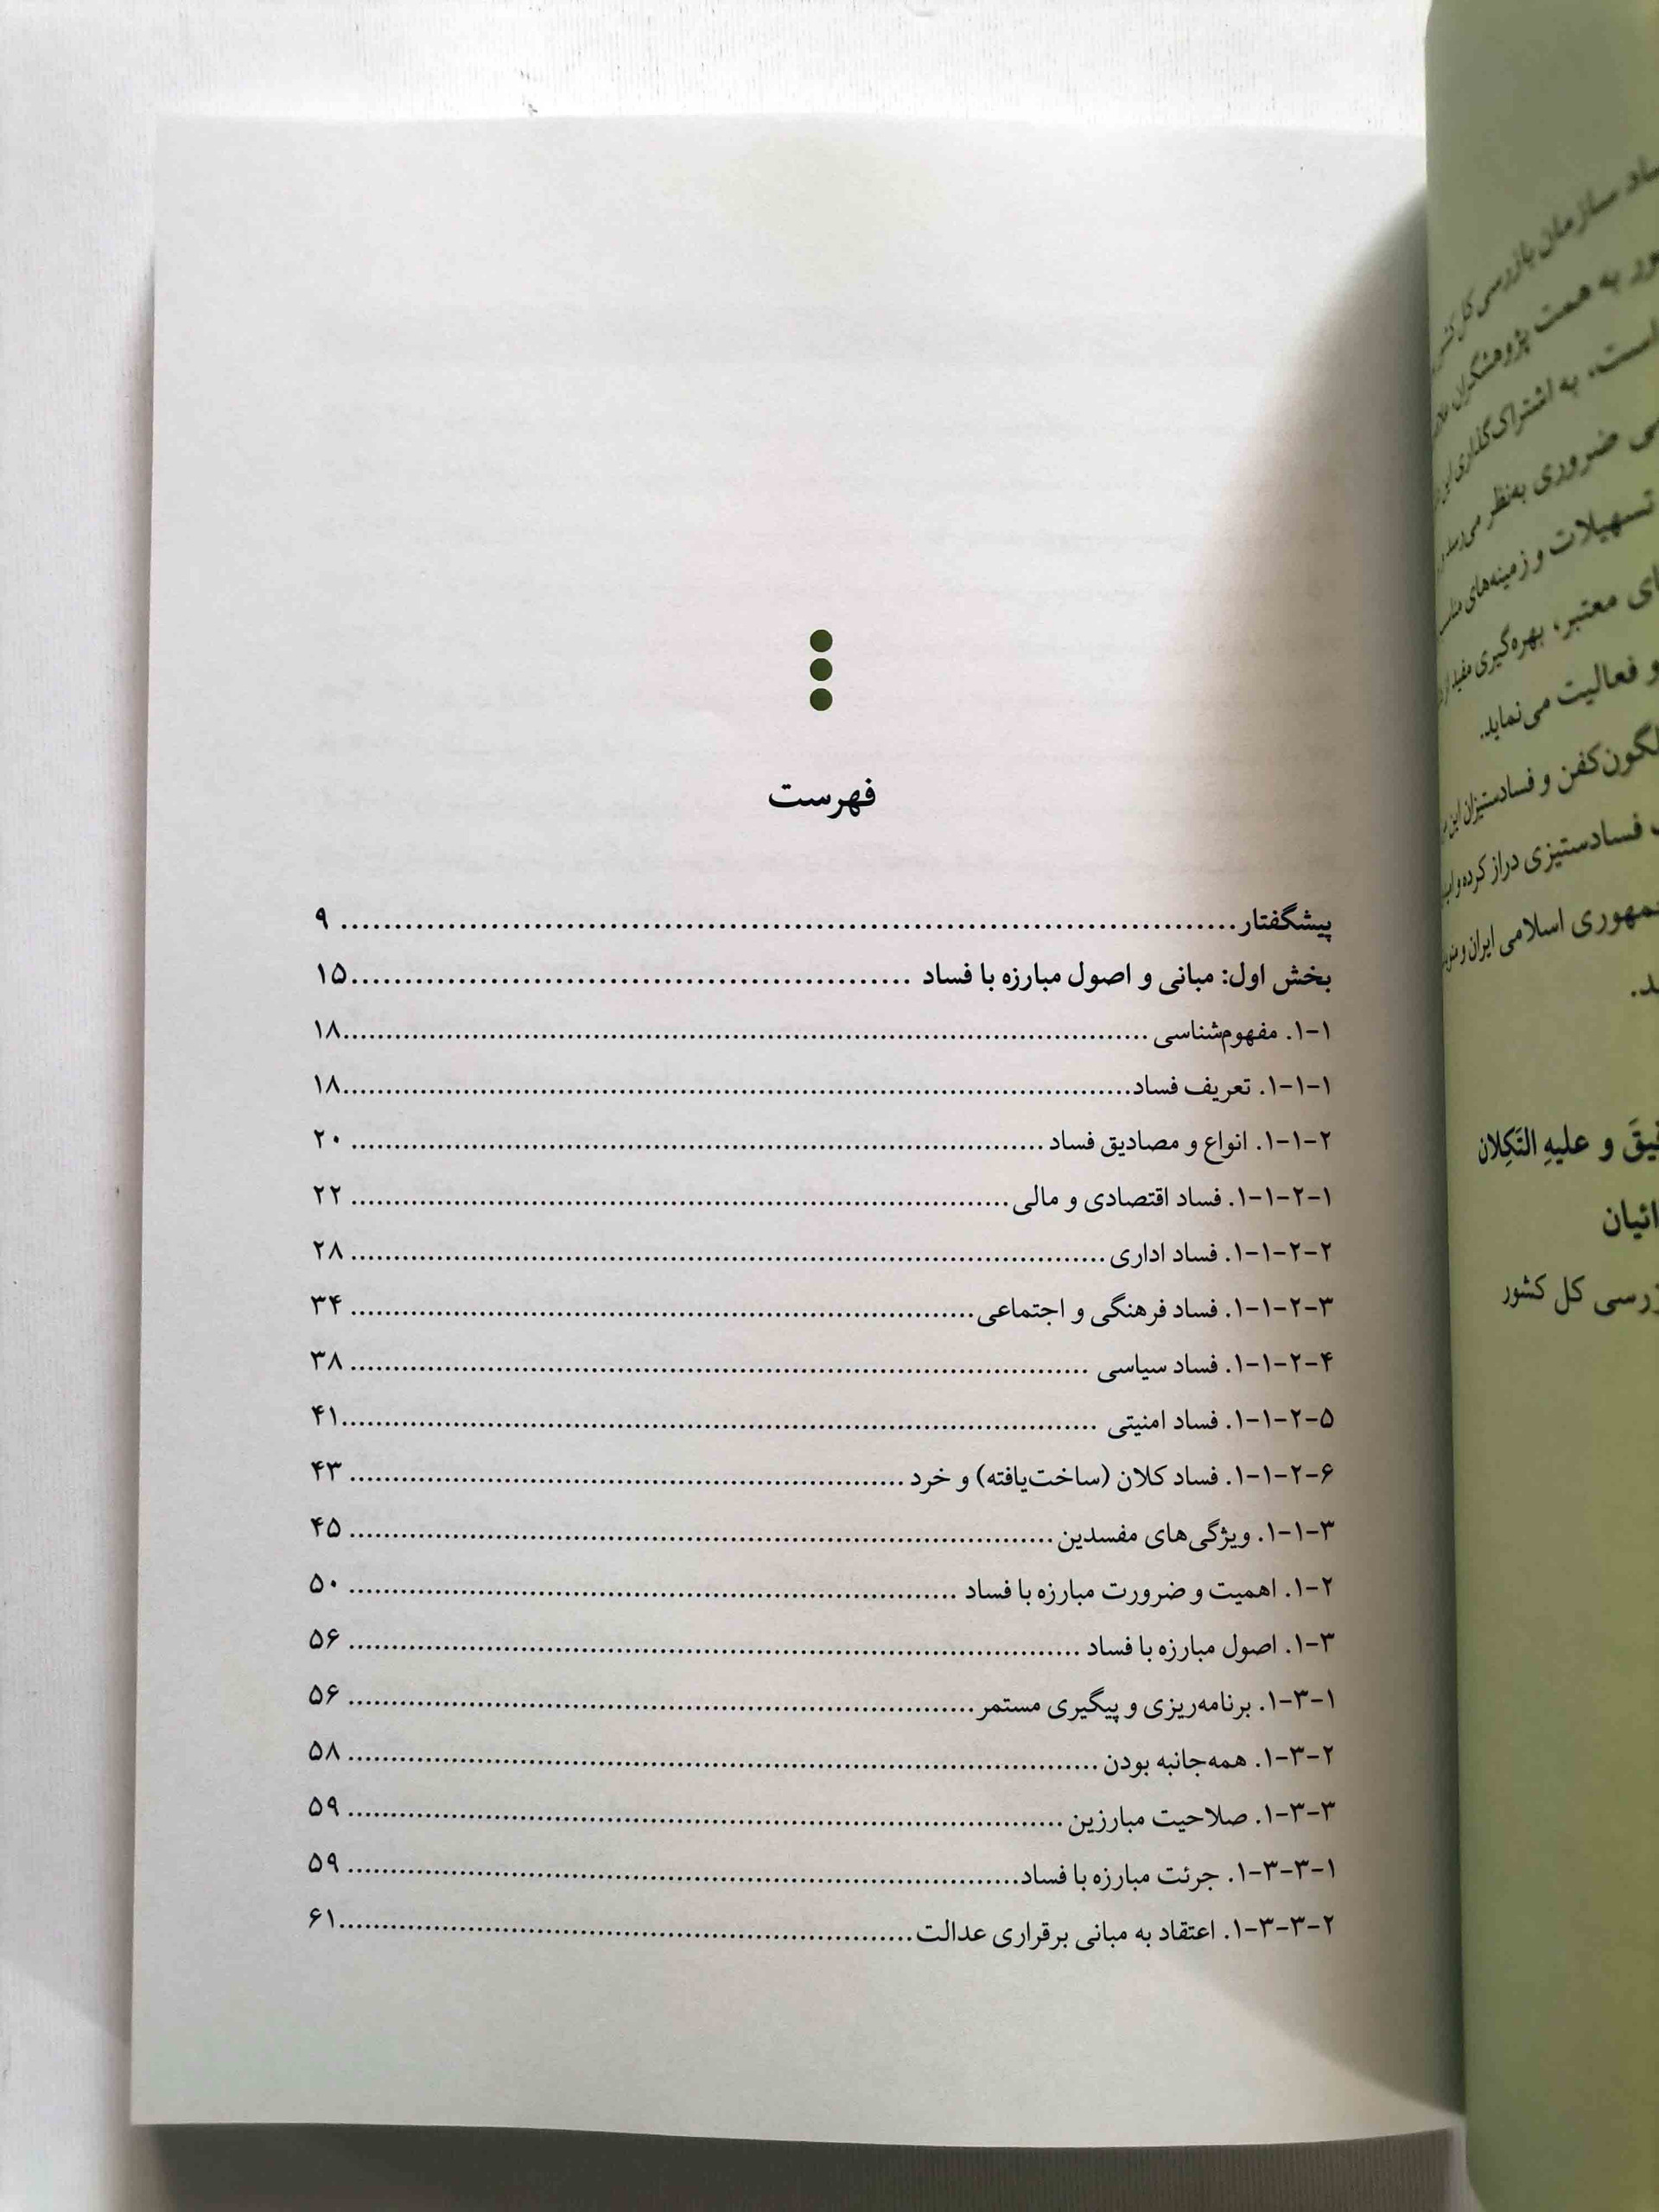 فهرست
پیشگفتار ........ ۹
بخش اول: مبانی و اصول مبارزه با فساد ........ ۱۵
۱-۱. مفهوم‌شناسی ........ ۱۸
۱-۱-۱. تعریف فساد ........ ۱۸
۱-۱-۲. انواع و مصادیق فساد ........ ۲۰
۱-۱-۲-۱. فساد اقتصادی و مالی ........ ۲۲
۱-۱-۲-۲. فساد اداری ........ ۲۸
۱-۱-۲-۳. فساد فرهنگی و اجتماعی ........ ۳۴
۱-۱-۲-۴. فساد سیاسی ........ ۳۸
۱-۱-۲-۵. فساد امنیتی ........ ۴۱
۱-۱-۲-۶. فساد کلان (ساخت‌یافته) و خرد ........ ۴۳
۱-۱-۳. ویژگی‌های مفسدین ........ ۴۵
۱-۲. اهمیت و ضرورت مبارزه با فساد ........ ۵۰
۱-۳. اصول مبارزه با فساد ........ ۵۶
۱-۳-۱. برنامه‌ریزی و پیگیری مستمر ........ ۵۶
۱-۳-۲. همه‌جانبه بودن ........ ۵۸
۱-۳-۳. صلاحیت مبارزین ........ ۵۹
۱-۳-۳-۱. جرئت مبارزه با فساد ........ ۵۹
۱-۳-۳-۲. اعتقاد به مبانی برقراری عدالت ........ ۶۱
سازمان بازرسی کل
به همت پژوهشگران
است، به اشتراک‌گذاری این
ضروری به‌نظر می‌رسد
تسهیلات و زمینه‌های
معتبر، بهره‌گیری مفید از
و فعالیت می‌نماید.
کفن و فسادستیزان این
فسادستیزی دراز کرده و
جمهوری اسلامی ایران و
و علیهِ التَکِلان
کل کشور